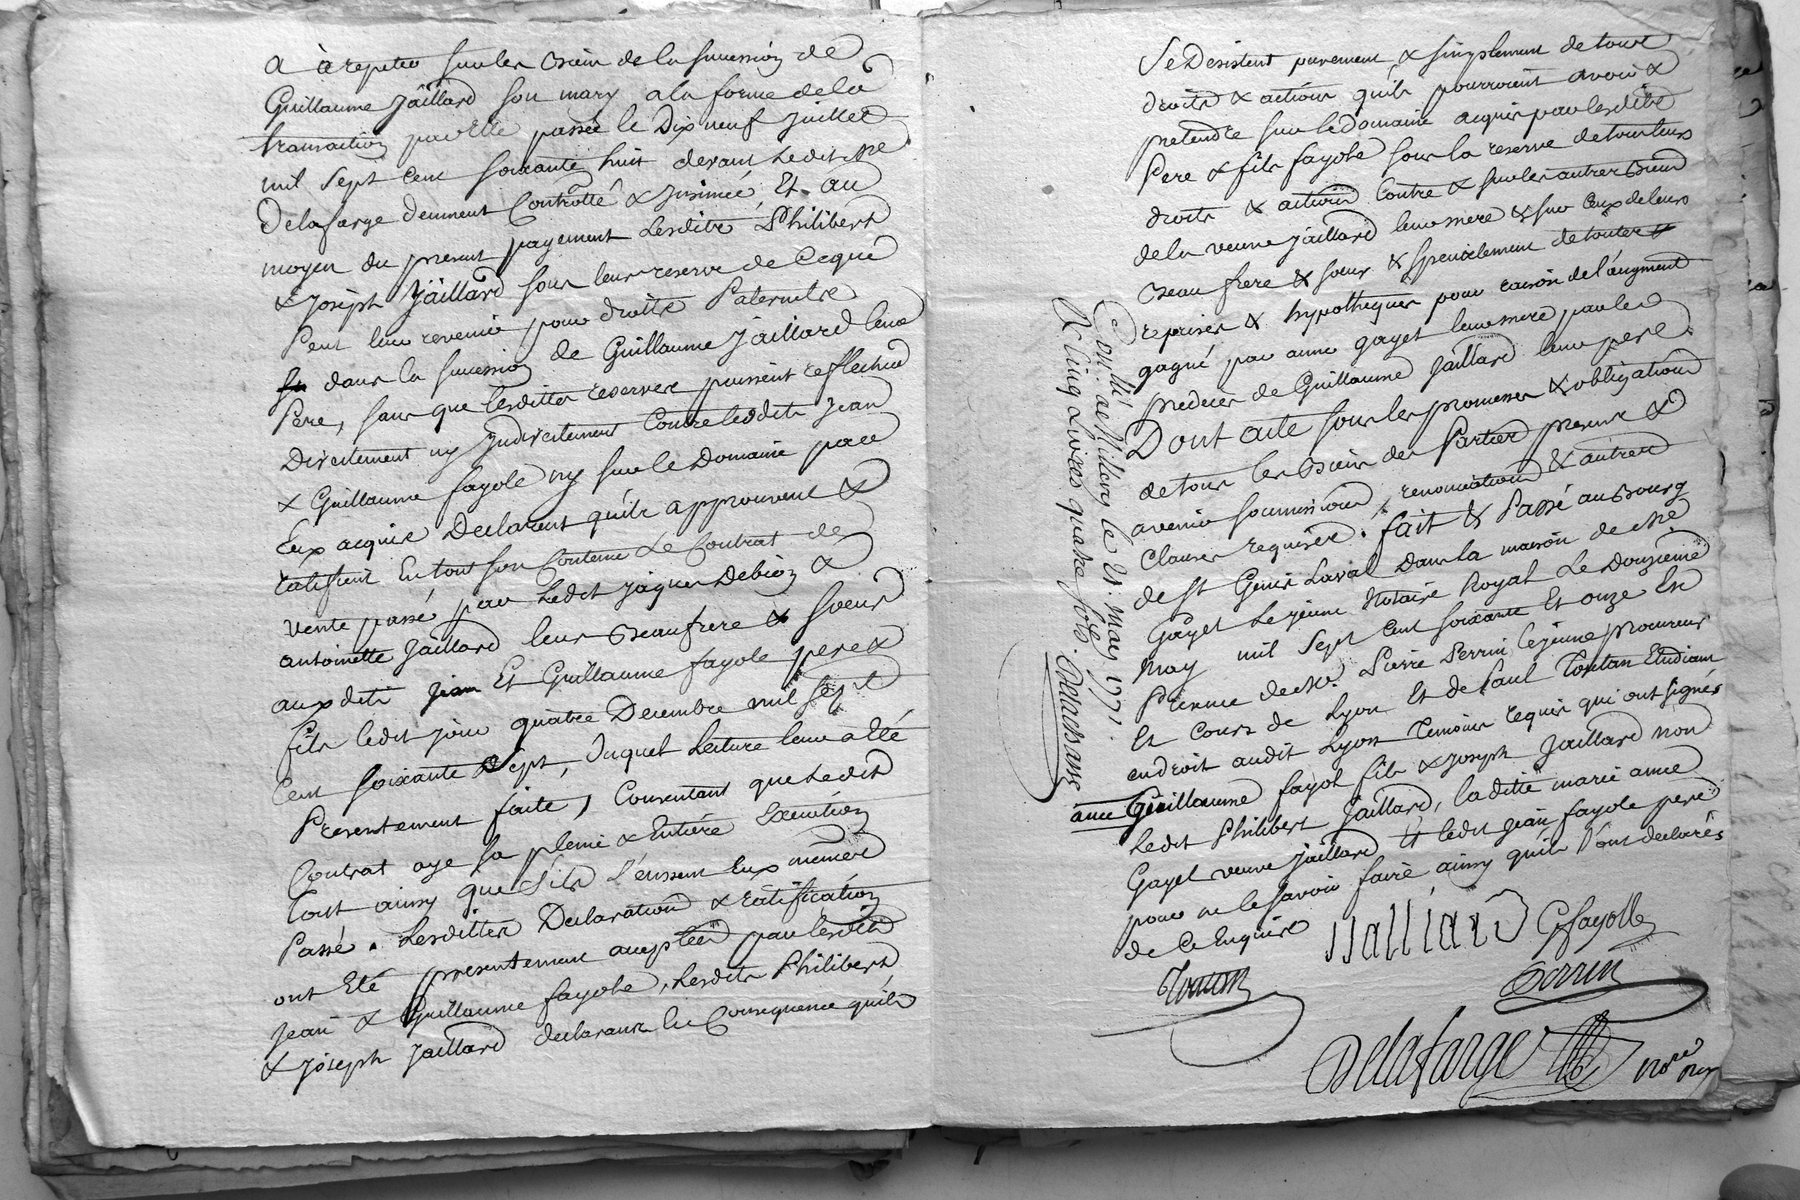 a à repeter sur les biens de la succession de
Guillaume Jaillard son mary a la forme de la
transaction par elle passée le dix neuf juillet
mil sept cent soixante huit devant ledit Me
Delafarge deument controllé & insinué, Et au
moyen du present payement lesdits Philibert
& Joseph Jaillard sous leur reserve de ce que
peut leur revenir pour droits paternels
dans la succession de Guillaume Jaillard leur
Pere, sans que lesdittes reserves puissent reflechir
directement ny indirectement contre lesdits Jean
& Guillaume fayole ny sur le Domaine par
Eux acquis declarent qu'ils approuvent &
ratifient En tout son contenu Le Contrat de
vente passé par ledit Jaques Debion &
antoinette Jaillard leurs beaufrere & soeur
auxdits jean Et Guillaume fayole pere &
fils ledit jour quatre Decembre mil sept
Cent soixante sept, duquel lecture leur a Eté
Presentement faite, Consentant que ledit
Contrat aye sa pleine & Entiere Execution
tout ainsy que s'ils l'eussent Eux memes
Passé. Lesdittes Declarations & ratification
ont Eté presentement acceptées par lesdits
jean & Guillaume fayole, Lesdits Philibert
& Joseph Jaillard declarans En Consequence qu'ils
Se Desistent purement & simplement de tous
droits & actions qu'ils pourroient avoir &
pretendre sur le domaine acquis par lesdits
Pere & fils fayole sous la reserve de tous leurs
droits & actions Contre & sur les autres biens
de la veuve Jaillard leur mere & sur Ceux de leurs
beau frere & soeur & specialement de toutes
reprises & hypotheques pour raison de l'augment
gagné par anne gayet leur mere par le
predeces de Guillaume Jaillard leur pere.
Dont acte sous les promesses & obligations
de tous les biens des Parties presents &
avenir soumissions, renonciations & autres
clauses requises. fait & Passé au Bourg
de St Genis Laval Dans la maison de Me
Gayet Le jeune Notaire Royal Le Douzieme
May mil sept cent soixante Et onze En
Presence de Me. Pierre Perrin le jeune procureur
Es Cours de Lyon Et de Paul Toutan Etudiant
en droit audit Lyon Temoins requis qui ont signés
avec Guillaume fayol fils & Joseph Jaillard non
ledit Philibert Jaillard, laditte marie anne
Gayet veuve Jaillard Et ledit jean fayole pere
pour ne le savoir faire ainsy qu'ils l'ont declarés
de Ce Enquis
JJallIard Gfayolle
Perrin
Delafarge Nore Roy
Con.llé a Millery le 21. may. 1771.
R cinq Livres quatre sols.